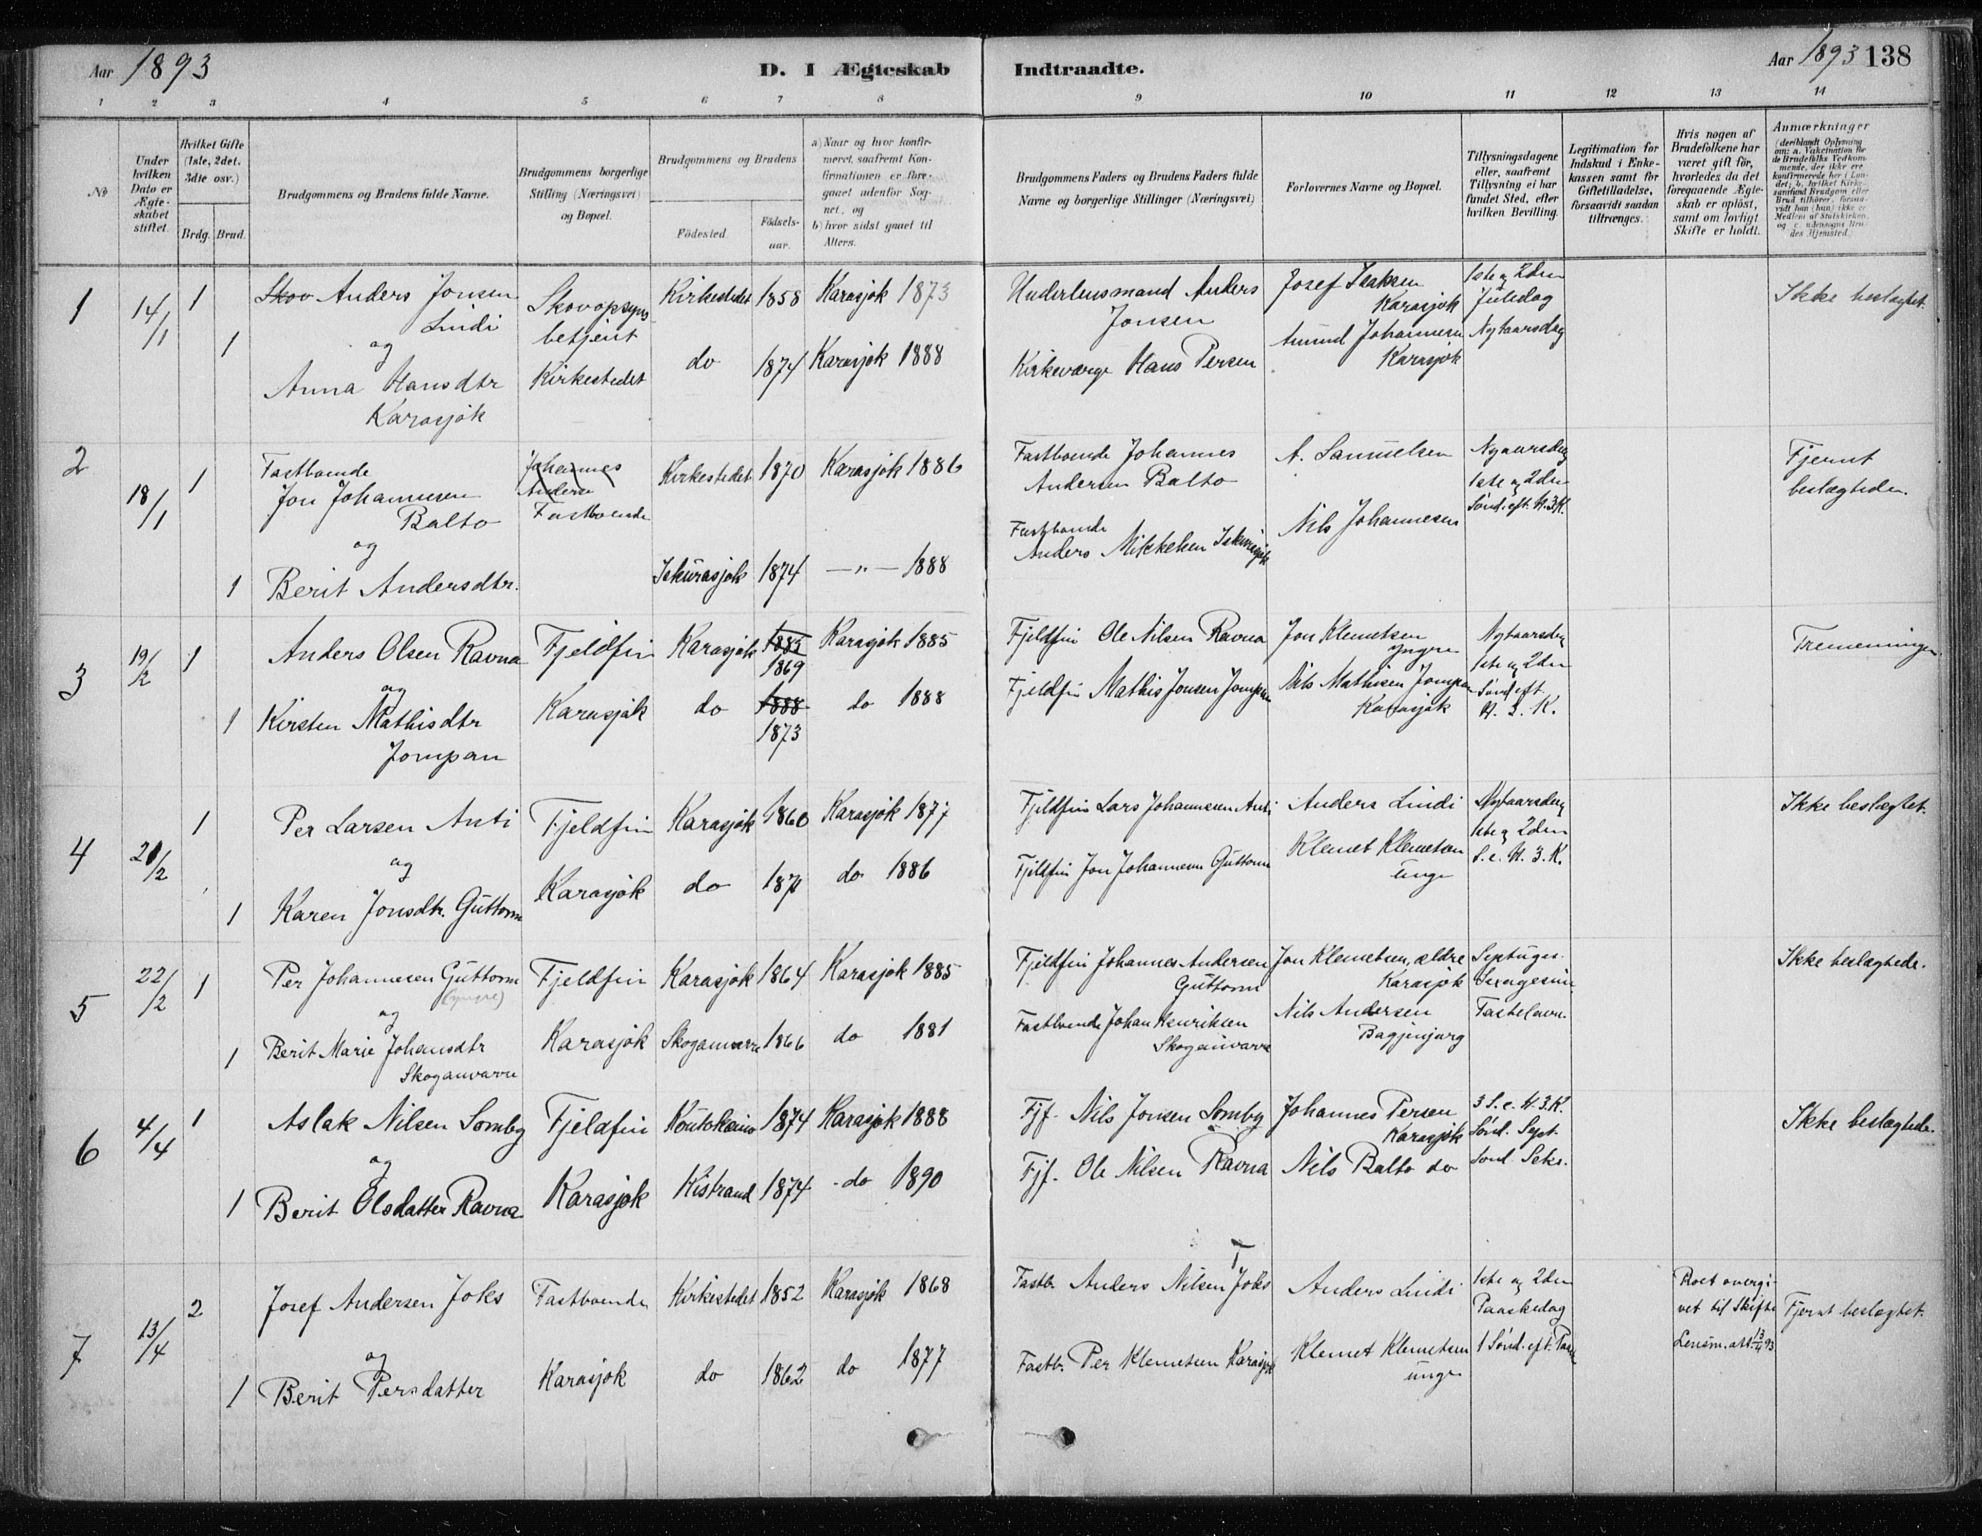 Aar 1893
D. I Ægteskab Indtraadte.
Aar 1893 138
1 2 3 4 5 6 7 8 9 10 11 12 13 14
No
Under hvilken Dato er Ægteskabet stiftet.
Hvilket Gifte (1ste, 2det, 3die osv.)
Brdg. Brud.
Brudgommens og Brudens fulde Navne.
Brudgommens borgerlige Stilling (Næringsvei) og Bopæl.
Brudgommens og Brudens
Födested.
Födselsaar.
a) Naar og hvor konfirmeret, saafremt Konfirmationen er foregaaet udenfor Sognet, og
b) hvor sidst gaaet til Alters.
Brudgommens Faders og Brudens Faders fulde Navne og borgerlige Stillinger (Næringsvei)
Forlovernes Navne og Bopæl.
Tillysningsdagene eller, saafremt Tillysning ei har fundet Sted, efter hvilken Bevilling.
Legitimation for Indskud i Enkekassen samt for Giftetilladelse, forsaavidt saadan tiltrænges.
Hvis nogen af Brudefolkene har været gift för, hvorledes da det foregaaende Ægteskab er oplöst, samt om lovligt Skifte er holdt.
Anmærkninger
1 14/1 1 Skov Anders Jonsen Lindi Skovopsynsbetjent Kirkestedet 1858 Karasjok 1873 Underlensmand Anders Jonsen Josef Isaksen Karasjok 1ste og 2den Juledag Ikke beslægtet.
og
1 Anna Hansdtr Karasjok Kirkestedet do 1874 Karasjok 1888 Kirkeværge Hans Persen Amund Johannesen Karasjok Nytaarsdag
2 18/1 1 Fastboende Jon Johannesen Balto Johannes Anderse Fastboende Kirkestedet 1870 Karasjok 1886 Fastboende Johannes Andersen Balto A. Samuelsen Nytaarsdag 1ste og 2den Sönd. eft. H.3K. Fjernt beslægtede.
og
1 Berit Andersdtr. Iskurasjok 1874 — " — 1888 Fastboende Anders Mikkelsen Iskurasjok Nils Johannesen
3 19/2 1 Anders Olsen Ravna Fjeldfin Karasjok 1885 1869 Karasjok 1885 Fjeldfin Ole Nilsen Ravna Jon Klemetsen yngre Nytaarsdag 1ste og 2den Sönd eft H. 3. K. Tremenninger
og
1 Kirsten Mathisdtr Jompan Karasjok do 1888 1873 do 1888 Fjeldfin Mathis Jonsen Jompan Nils Mathisen Jompan Karasjok
4 21/2 1 Per Larsen Anti Fjeldfin Karasjok 1860 Karasjok 1877 Fjeldfin Lars Johannesen Anti Anders Lindi Nytaarsdag 1ste og 2den S. e. H. 3. K. Ikke beslægtet.
og
1 Karen Jonsdtr. Guttorm Karasjok do 1871 do 1886 Fjeldfin Jon Johannesen Guttorm Klemet Klemetsen unge
5 22/2 1 Per Johannesen Guttorm (yngre) Fjeldfin Karasjok 1864 Karasjok 1885 Fjeldfin Johannes Andersen Guttorm Jon Klemetsen, ældre Karasjok Septuges. Sexagesim. Fastelavn. Ikke beslægtede.
og
1 Berit Marie Johansdtr Skoganvarre Karasjok Skoganvarre 1866 do 1881 Fastboende Johan Henriksen Skoganvarre Nils Andersen Bagjinjarg
6 4/4 1 Aslak Nilsen Somby Fjeldfin Koutokeino 1874 Karasjok 1888 Fjf. Nils Jonsen Somby Johannes Persen Karasjok 3 S. e. H. 3. K. Sönd. Sept. Sönd. Seks. Ikke beslægtede.
og
1 Berit Olsdatter Ravna Karasjok Kistrand 1874 do 1890 Fjf. Ole Nilsen Ravna Nils Balto do
7 13/4 2 Josef Andersen Joks Fastboende Kirkestedet 1852 Karasjok 1868 Fastb. Anders Nilsen Joks Anders Lindi 1ste og 2den Paaskedag Boet overgivet til Skifte Lensm. att. 13/4 93 Fjernt beslægtet.
og
1 Berit Persdatter Karasjok do 1862 do 1877 Fastb. Per Klemetsen Karasjok Klemet Klemetsen unge 1 Sönd. eft. Paaske